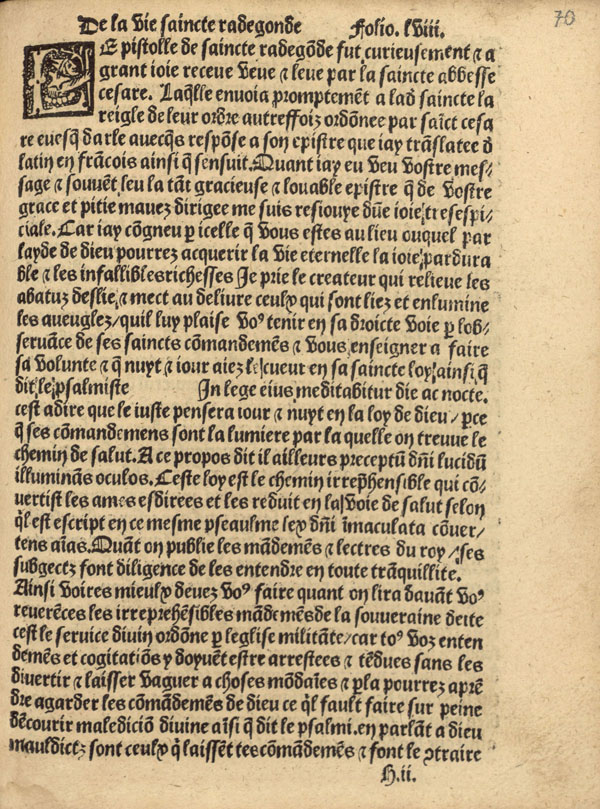 De la vie saincte radegonde Folio. lviii.
70
LE pistolle de saincte radegõde fut curieusement ⁊ a
grant ioie receue veue ⁊ leue par la saincte abbesse
cesare. Laq̃lle enuoia promptemẽt a lad saincte la
reigle de leur ordre autreffoiz ordõnee par saĩct cesa
re euesq̃ darle auecq̃s respõse a son epistre que iay trãslatee d̃
latin en frãcois ainsi q̃ sensuit. Quant iay eu veu vostre mes⸗
sage ⁊ souuẽt leu la tãt gracieuse ⁊ louable epistre q̃ de vostre
grace et pitie mauez dirigee me suis resiouye dũe ioie tresespi⸗
ciale. Car iay cõgneu p icelle q̃ vous estes au lieu ouquel par
layde de dieu pourrez acquerir la vie eternelle la ioie pardura
ble ⁊ les infallibles richesses Je prie le createur qui relieue les
abatuz deslie ⁊ mect au deliure ceulx qui sont liez et enlumine
les aueuglez/ quil luy plaise voꝰ tenir en sa droicte voie p lob⸗
seruãce de ses saincts cõmandemẽs ⁊ vous enseigner a faire
sa volunte ⁊ q̃ nuyt ⁊ iour aiez le cueur en sa saincte loy ainsi q̃
dit le psalmiste In lege eius meditabitur die ac nocte.
cest adire que le iuste pensera iour ⁊ nuyt en la loy de dieu/ pce
q̃ ses cõmandemens sont la lumiere par la quelle on treuue le
chemin de salut. A ce propos dit il ailleurs preceptũ dñi lucidũ
illuminãs oculos. Ceste loy est le chemin irrep̃hensible qui cõ⸗
vertist les ames esdirees et les reduit en la voie de salut selon
q̃l est escript en ce mesme pseaulme lex dñi ĩmaculata cõuer⸗
tens aĩas. Quãt on publie les mãdemẽs ⁊ lectres du roy/ ses
subgectz font diligence de les entendre en toute trãquillite.
Ainsi voires mieulx deuez voꝰ faire quant on lira dauãt voꝰ
reuerẽces les irreprehẽsibles mãdemẽs de la souueraine deite
cest le seruice diuin ordõne p leglise militãte/ car toꝰ voz enten
demẽs et cogitatiõs y doyuẽt estre arrestees ⁊ tẽdues sans les
diuertir ⁊ laisser vaguer a choses mõdaĩes ⁊ p la pourrez aprẽ
dre agarder les cõmãdemẽs de dieu ce q̃l fault faire sur peine
dẽcourir maledictiõ diuine aĩsi q̃ dit le psalmi. en parlãt a dieu
mauldictz sont ceulx q̃ laissẽt tes cõmãdemẽs ⁊ font le ↄtraire
H.ii.